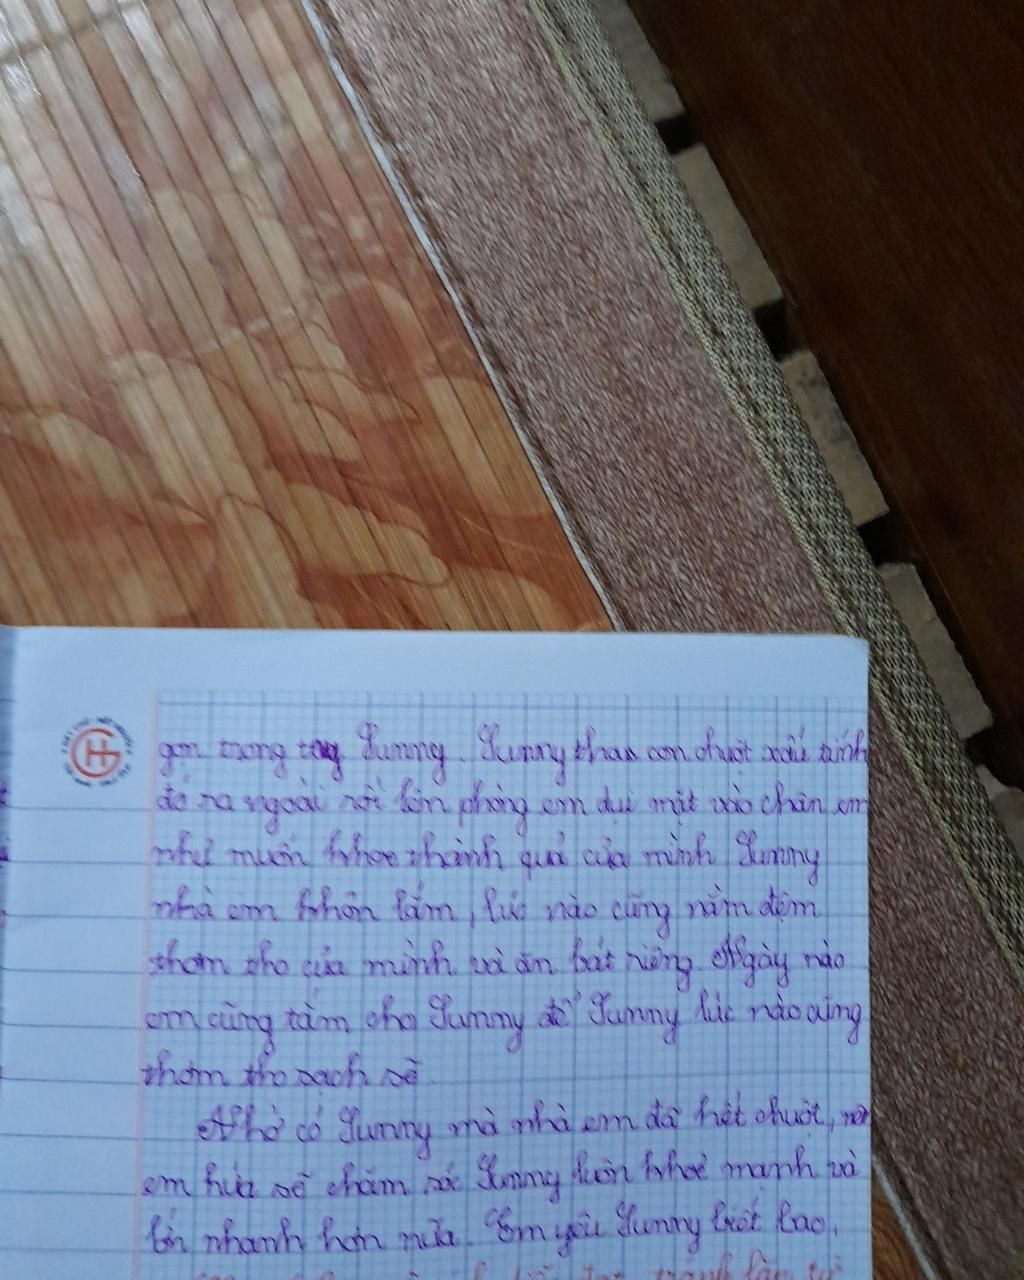 gọn trong tay Sunny. Sunny tha con chuột xấu tính
đó ra ngoài rồi lên phòng em dụi mặt vào chân em
như muốn khoe thành quả của mình Sunny
nhà em khôn lắm, lúc nào cũng nằm đệm
thơm tho của mình và ăn bát riêng. Ngày nào
em cũng tắm cho Sunny để Sunny lúc nào cũng
thơm tho sạch sẽ
Nhờ có Sunny mà nhà em đã hết chuột, nên
em hứa sẽ chăm sóc Sunny luôn khoẻ mạnh và
lớn nhanh hơn nữa. Em yêu Sunny biết bao.